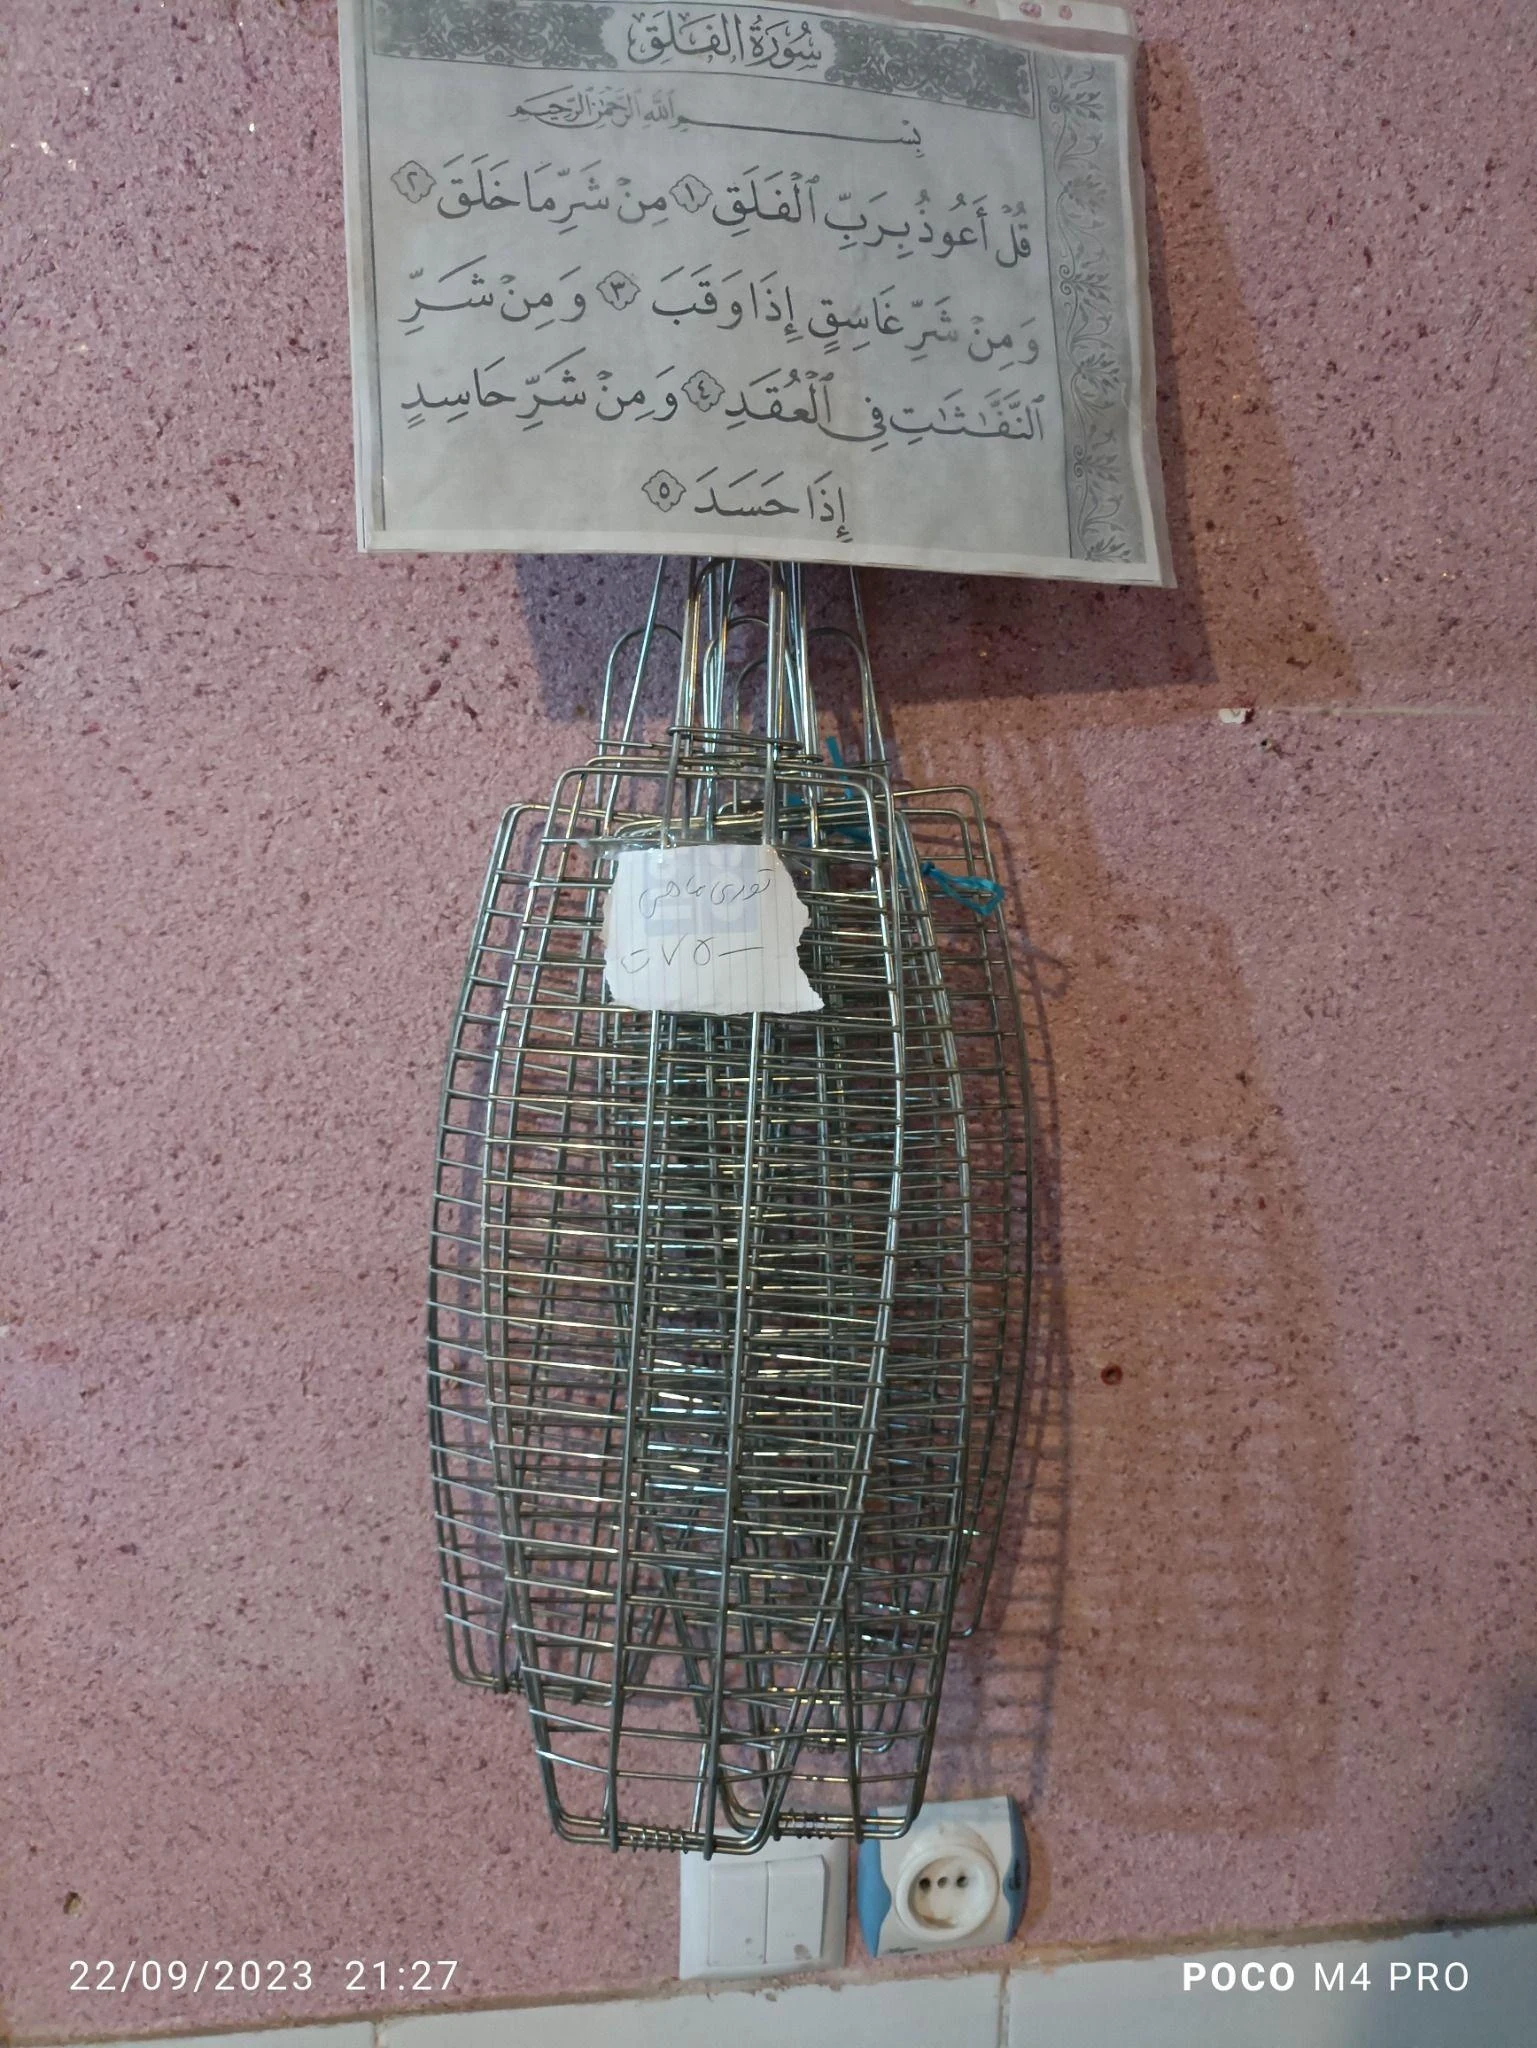 سُورَةُ الفَلَقِ
بِسْمِ ٱللَّهِ ٱلرَّحْمَٰنِ ٱلرَّحِيمِ
قُلْ أَعُوذُ بِرَبِّ ٱلْفَلَقِ ١ مِن شَرِّ مَا خَلَقَ ٢
وَمِن شَرِّ غَاسِقٍ إِذَا وَقَبَ ٣ وَمِن شَرِّ
ٱلنَّفَّٰثَٰتِ فِى ٱلْعُقَدِ ٤ وَمِن شَرِّ حَاسِدٍ
إِذَا حَسَدَ ٥
توری ماهی
۷۵ ـ ت
22/09/2023 21:27
POCO M4 PRO